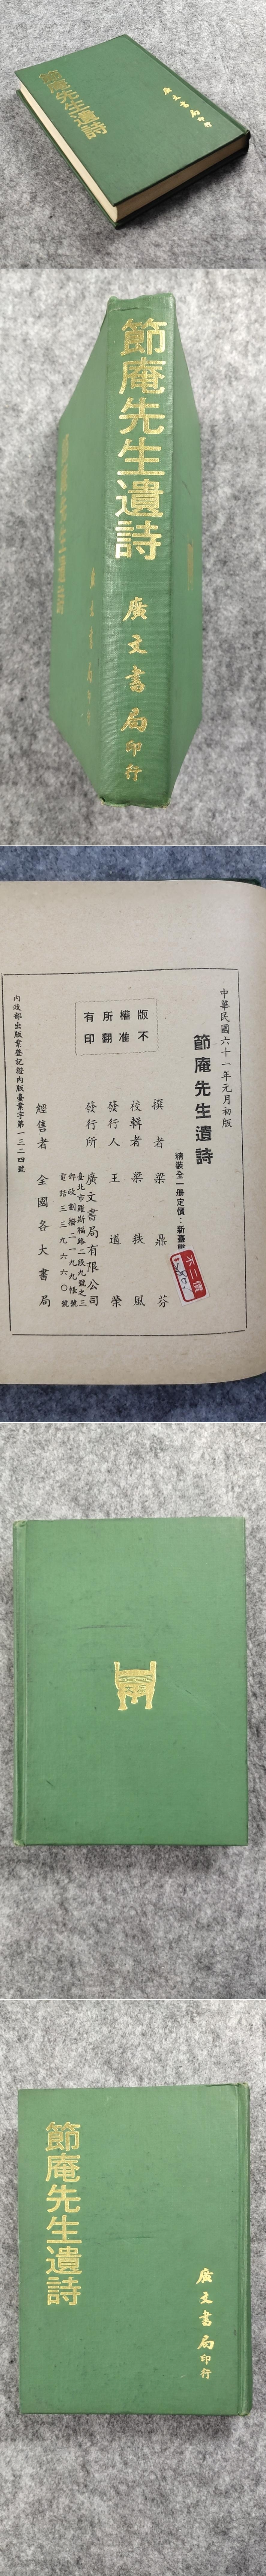 節庵先生遺詩
廣文書局印行
節庵先生遺詩
廣文書局印行
中華民國六十一年元月初版
節庵先生遺詩
精裝全一册定價：新臺
不二價
撰者 梁鼎芬
校輯者 梁秩風
發行人 王道榮
發行所 廣文書局有限公司
臺北市羅斯福路二段九號之三
郵政劃撥二一九九帳號
電話三三九六六〇號
版權所有
不准翻印
經售者 全國各大書局
內政部出版業登記證內版臺業字第一三二四號
節庵先生遺詩
廣文書局印行